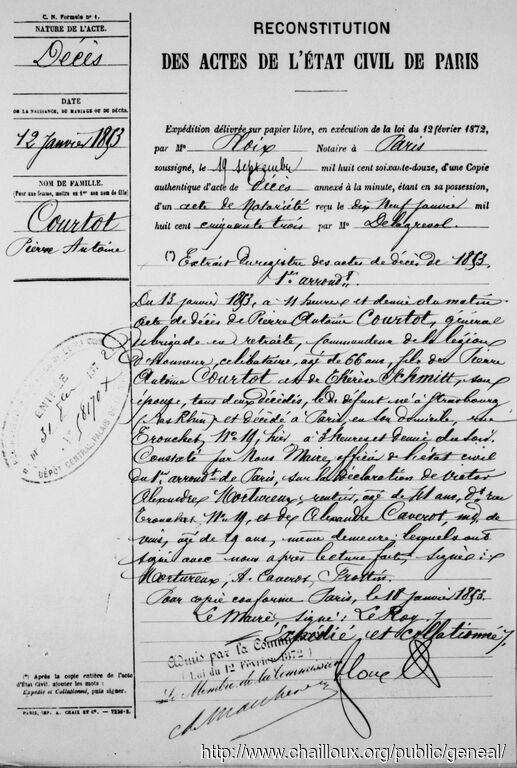 C. N. Formule nº 1.
NATURE DE L'ACTE.
Décès
DATE
DE LA NAISSANCE, DU MARIAGE OU DU DÉCÈS.
12 Janvier 1853
NOM DE FAMILLE.
(Pour une femme, mettre en 1er son nom de fille)
Courtot
Pierre Antoine
DÉPÔT CENTRAL PALAIS
(*) Après la copie entière de l'acte
d'État Civil, ajouter les mots :
Expédié et Collationné, puis signer.
PARIS, IMP. A. CHAIX ET Cie.
RECONSTITUTION
DES ACTES DE L'ÉTAT CIVIL DE PARIS
Expédition délivrée sur papier libre, en exécution de la loi du 12 février 1872,
par Me Ploix Notaire à Paris
soussigné, le 19 septembre mil huit cent soixante-douze, d'une Copie
authentique d'acte de Décès annexé à la minute, étant en sa possession,
d'un acte de Notoriété reçu le dix Neuf janvier mil
huit cent cinquante trois par Me Delagrevol
(*) Extrait du registre des actes de décès de 1853
1er arrondt
Du 13 janvier 1853, à 11 heures et demie du matin
acte de décès de Pierre Antoine Courtot, général
de brigade en retraite, commandeur de la légion
d'honneur, célibataire, agé de 66 ans, fils de Pierre
Antoine Courtot et de Thérèse Schmitt, son
épouse, tous deux décédés, le défunt né à Strasbourg
(Bas Rhin) et décédé à Paris en son domicile, rue
Tronchet, No 19, hier à heures et demie du soir.
Constaté par Nous Maire, officier de l'état civil
du 1er arrondt de Paris, sur la déclaration de Victor
Alexandre Mortureux, rentier, agé de ans, dt rue
Tronchet No 19, et de Alexandre Caverot, md de
vins, agé de 29 ans, même demeure; lesquels ont
signé avec nous après lecture faite, signé :
Mortureux, A. Caverot, Frottin.
Pour copie conforme Paris, le 18 janvier 1853.
Le Maire signé : Le Roy /
Expédié et collationné /.
Admis par la Commission
(Loi du 12 Février 1872)
Le Membre de la Commission
Ploix
http://www.chailloux.org/public/geneal/